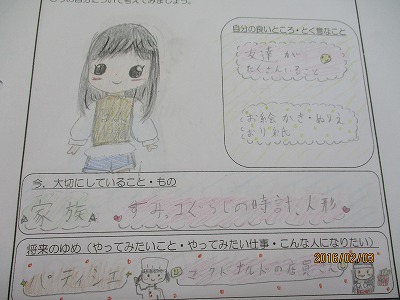 の自分について考えてみましょう。
自分の良いところ・とく意なこと
女達が
たくさんいること
お絵かき・ぬりえ
おり紙
今、大切にしていること・もの
家族
すみっコぐらしの時計、人形
将来のゆめ（やってみたいこと・やってみたい仕事・こんな人になりたい）
パティシエ
マクドナルドの店員さん
2016/02/03